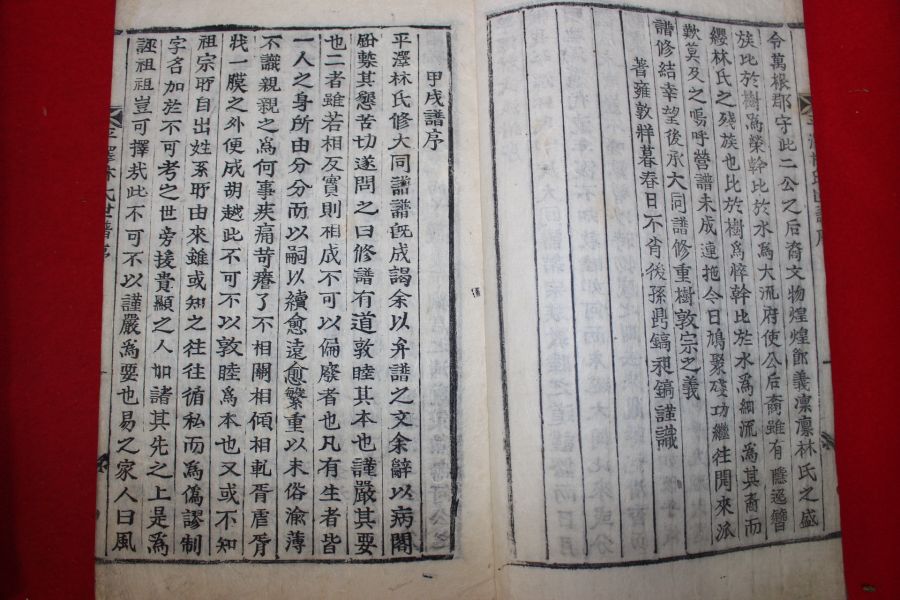 令萬根郡守此二公之后裔文物煌煌節義凛凛林氏之盛
族比於樹爲榮幹比於水爲大流府使公后裔雖有聽邈簪
纓林氏之残族也比於樹爲悴幹比於水爲細流爲其裔而
歎莫及之嗚呼營譜未成遠拖今日鳩聚殘功繼往開來派
譜修結幸望後承大同譜修重樹敦宗之義
著雍敦牂暮春日不肖後孫 鎬 鎬謹識
甲戌譜序
平澤林氏修大同譜譜旣成謁余以弁譜之文余辭以病閣
 繫其懇苦切遂問之曰修譜有道敦睦其本也謹嚴其要
也二者雖若相反實則相成不可以偏廢者也凡有生者皆
一人之身所由分分而以嗣以續愈遠愈繁重以末俗渝薄
不識親親之爲何事疾痛苛癢了不相關相傾相軋胥虐胥
戕一膜之外便成胡越此不可不以敦睦爲本也又或不知
祖宗所自出姓系所由來雖或知之往往循私而爲僞謬制
字名加於不可考之世旁援貴顯之人加諸其先之上是爲
誣祖祖豈可擇哉此不可不以謹嚴爲要也易之家人曰風
平澤林氏世譜序